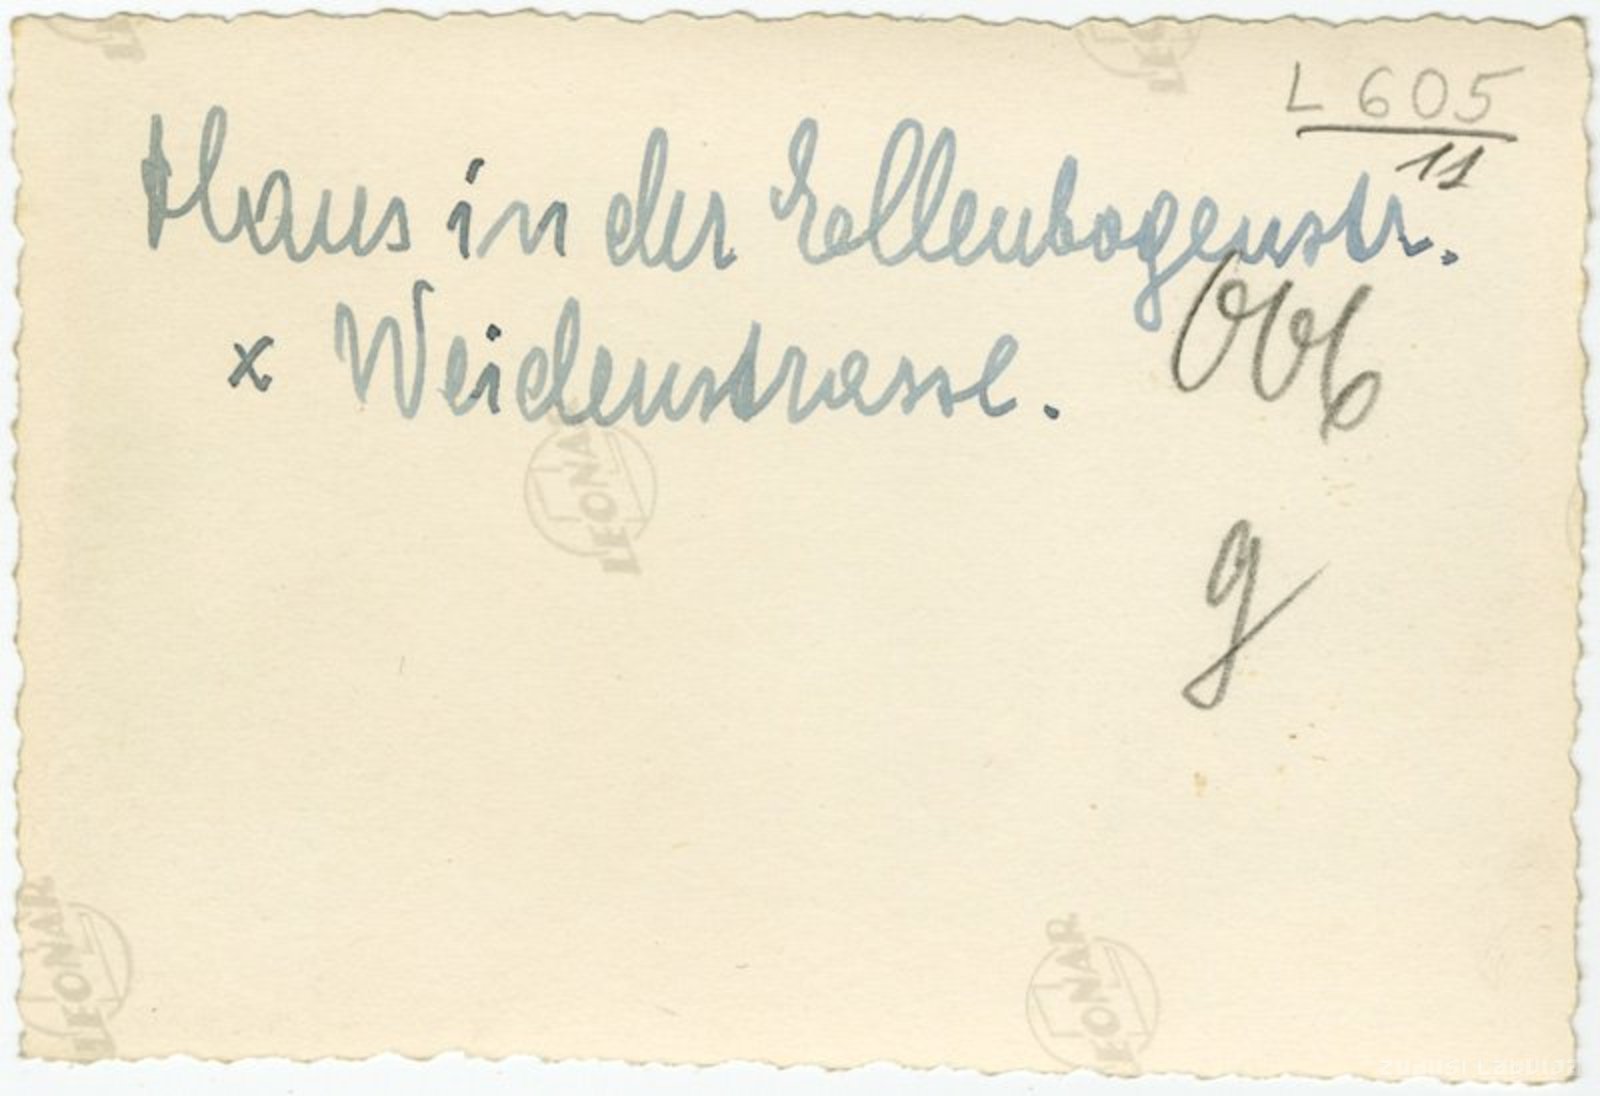 L 605
11
Haus in der Ellenbogenstr.
x Weidenstrasse.
g
LEONAR
LEONAR
LEONAR